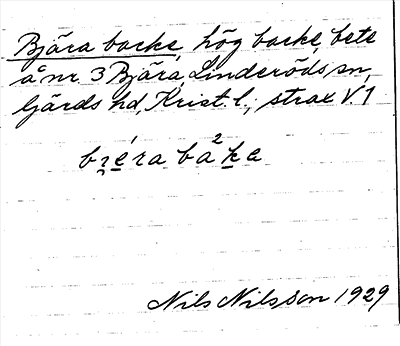 Bjära backe, hög backe, bete
å nr 3 Bjära, Linderöds sn,
Gärds hd, Krist. l.; strax V. 1
bɿéra ba²ke
Nils Nilsson 1929